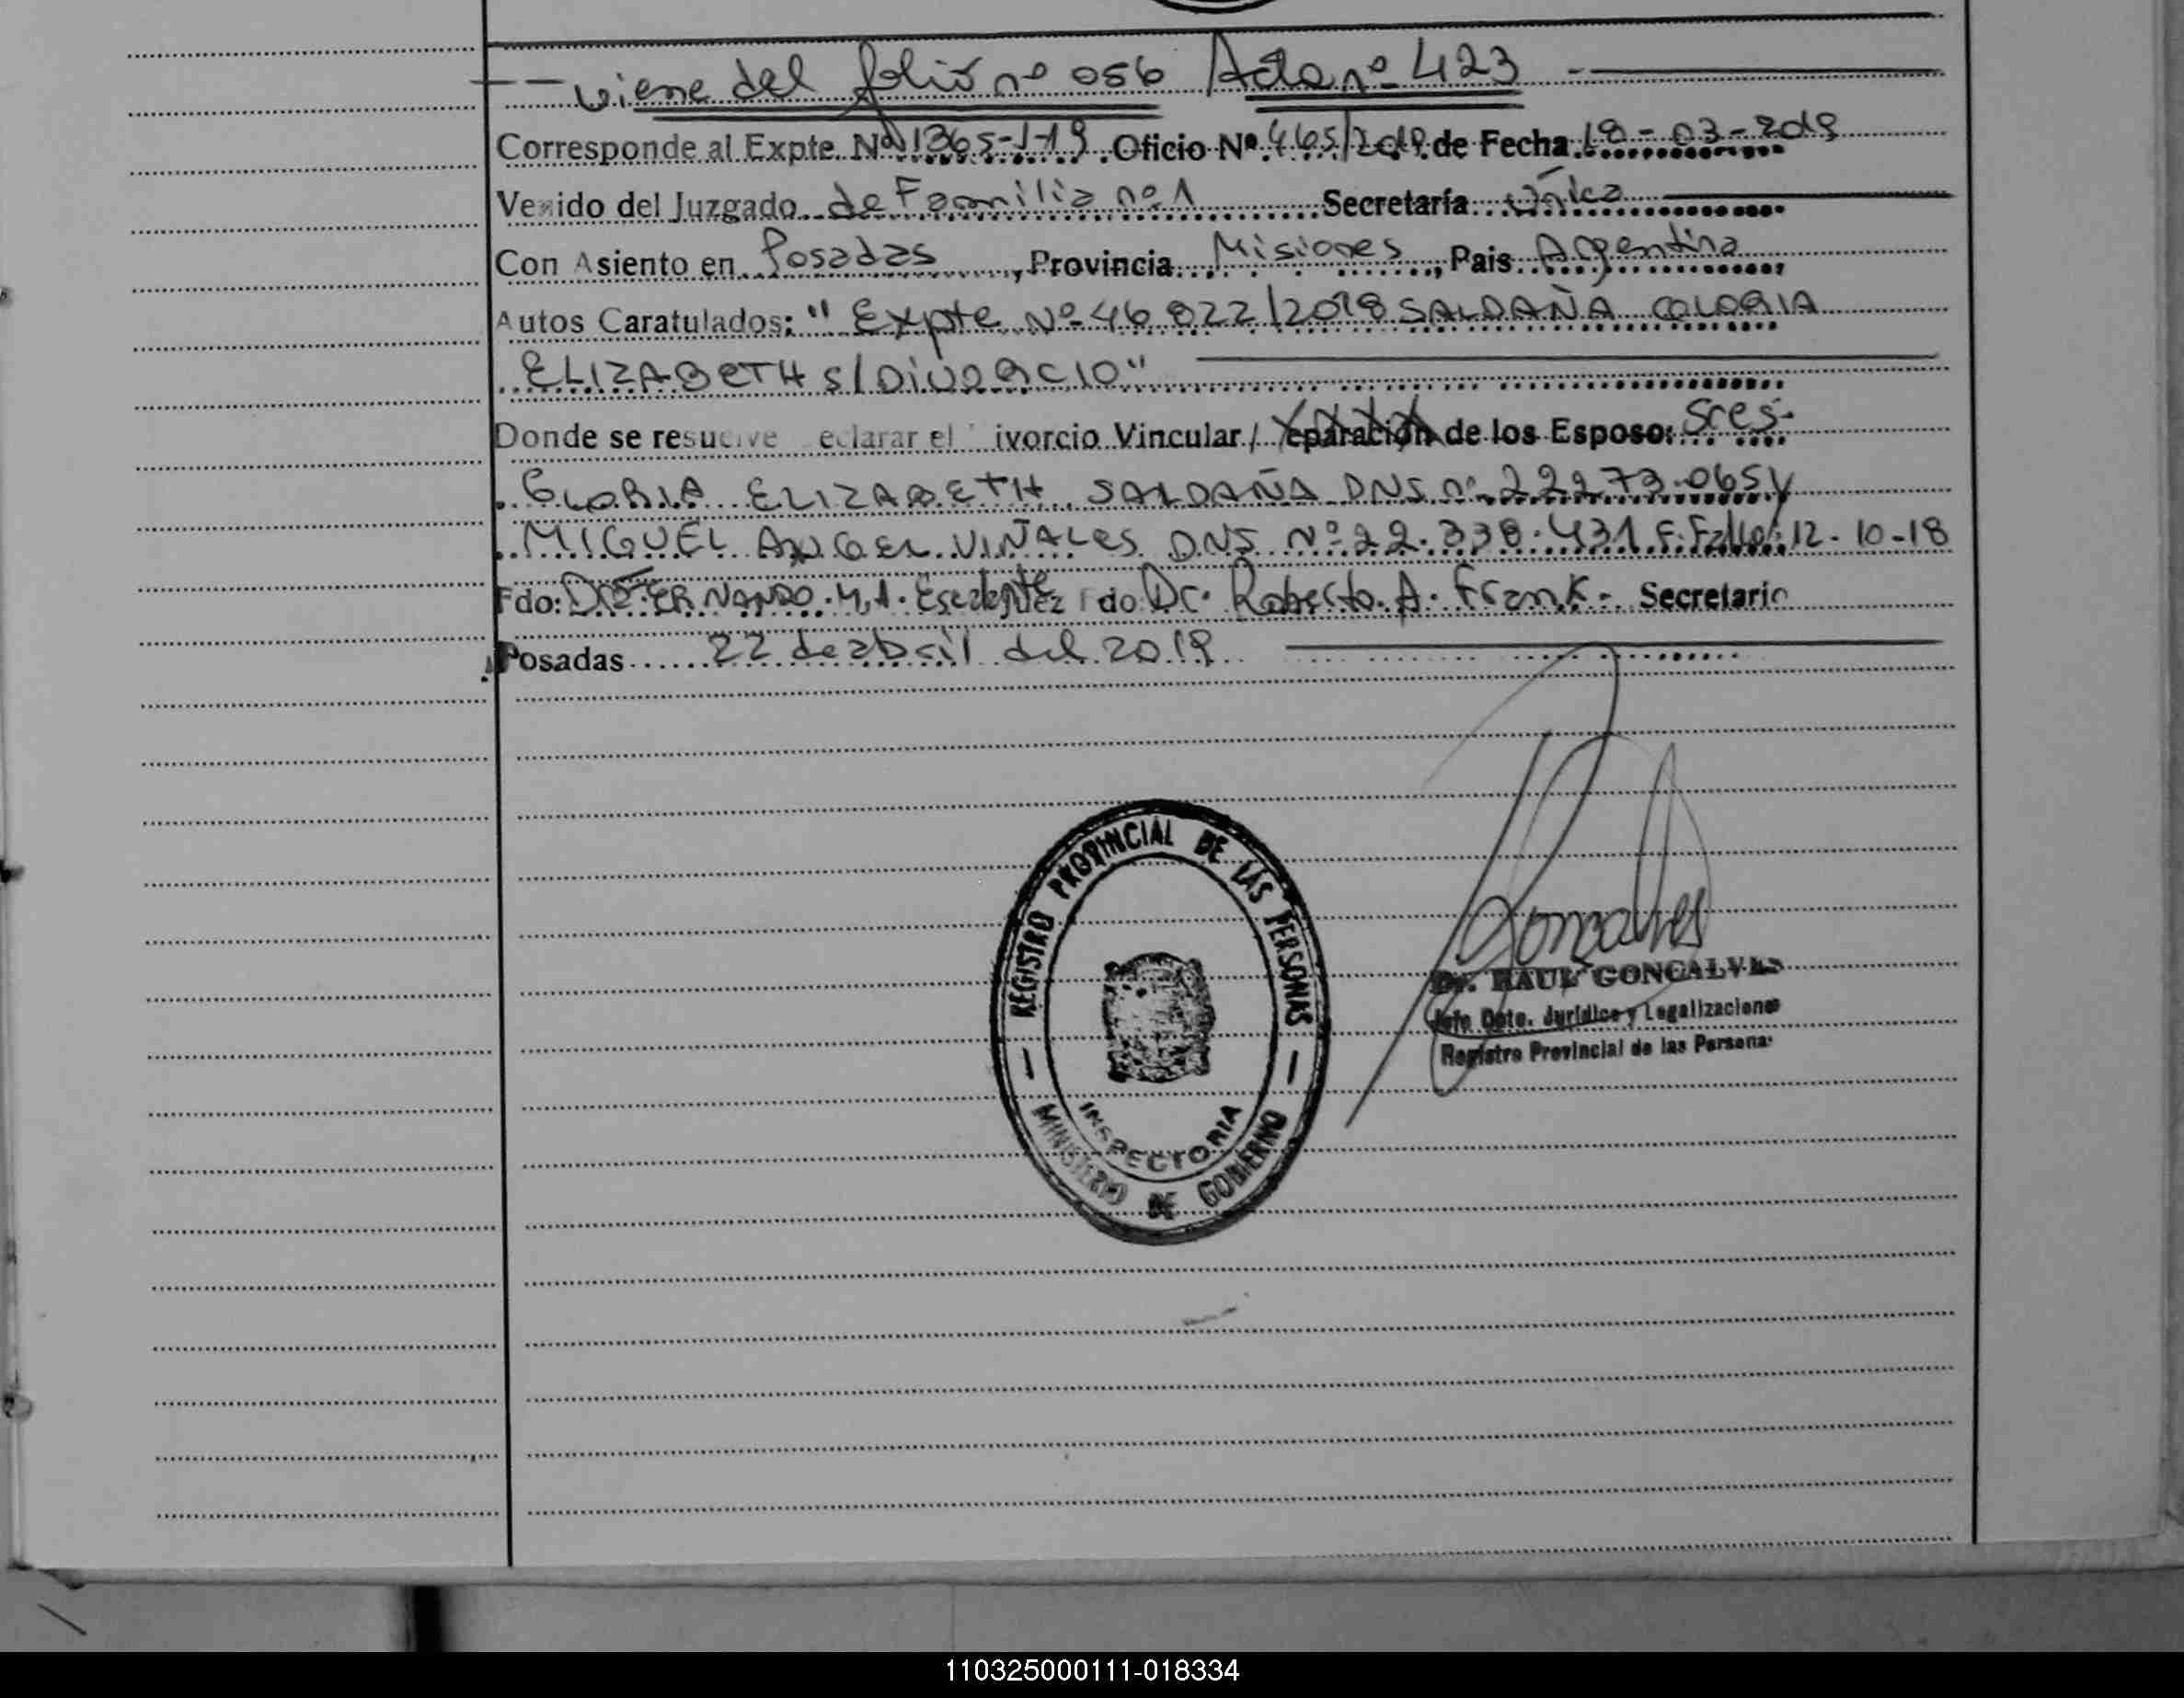 viene del folio nº 056 Acta nº 423
Corresponde al Expte. Nº 1365-J-19. Oficio Nº 465/2019 de Fecha 18-03-2019
Venido del Juzgado de Familia nº 1 Secretaría Única
Con Asiento en Posadas, Provincia Misiones, Pais Argentina
Autos Caratulados: "Expte Nº 46822/2018 SALDAÑA GLORIA
ELIZABETH S/DIVORCIO"
Donde se resuelve eclarar el ivorcio Vincular / eparación de los Esposo: Sres.
GLORIA ELIZABETH SALDAÑA DNI nº 22273.065 y
MIGUEL ANGEL VIÑALES DNI Nº 22.338.431 F. Fallo: 12-10-18
Fdo: Dr FERNANDO M.A. Escalante Juez Fdo Dr. Roberto A. Frank. Secretario
Posadas 22 de abril del 2019
REGISTRO PROVINCIAL DE LAS PERSONAS
INSPECTORIA
MINISTERIO DE GOBIERNO
Goncalves
Dr. RAUL GONCALVES
Jefe Dpto. Jurídico y Legalizacione
Registro Provincial de las Persona
110325000111-018334